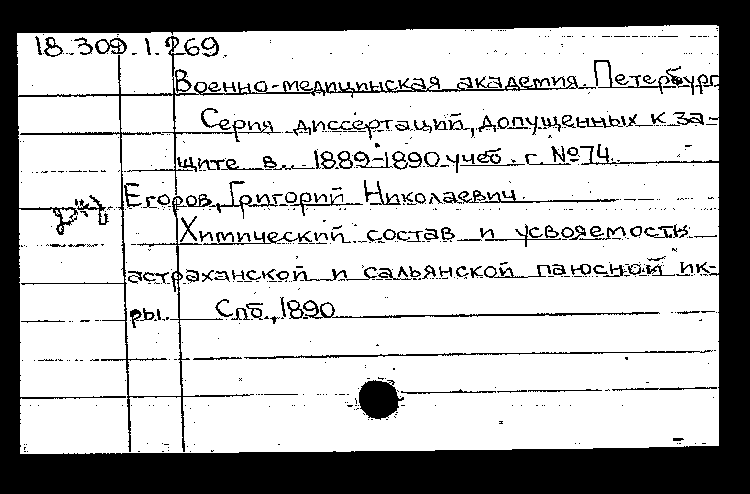 18.309.1.269
Военно-медицинская академия. Петербург
Серия диссертаций, допущенных к за-
щите в.. 1889-1890 учеб. г. №74.
Егоров, Григорий Николаевич.
Химический состав и усвояемость
астраханской и сальянской паюсной ик-
ры. Спб., 1890